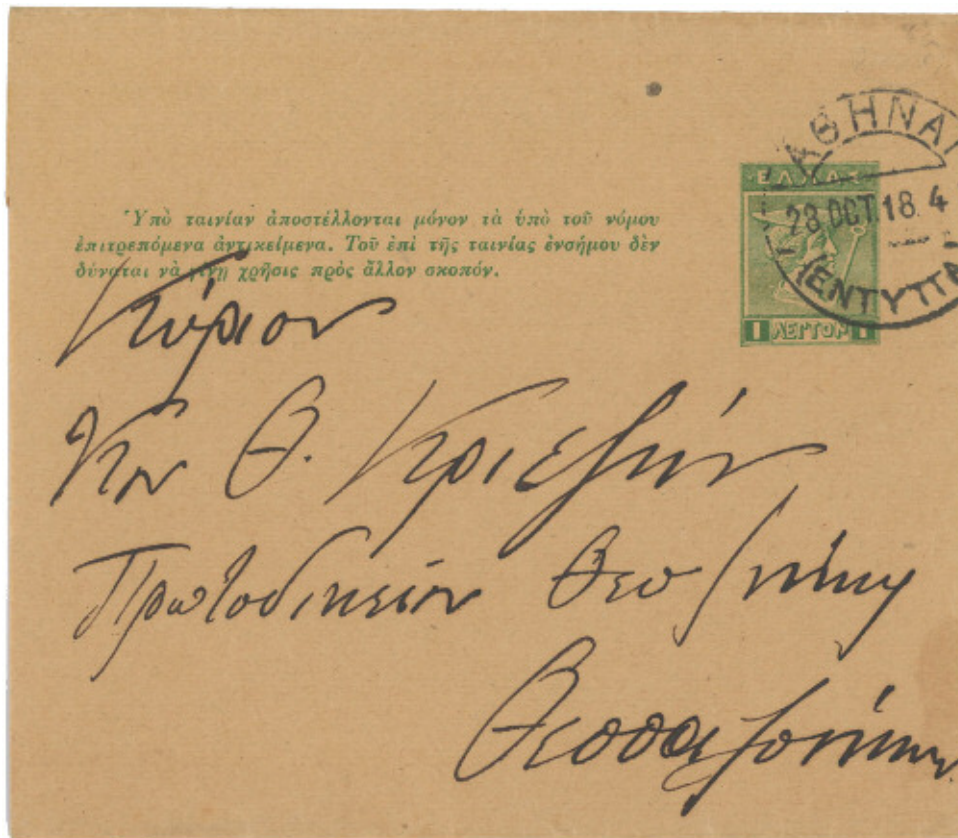 ΑΘΗΝΑΙ
ΕΛΛΑΣ
28 OCT. 18. 4
(ΕΝΤΥΠΑ
1 ΛΕΠΤΟΝ 1
Ὑπὸ ταινίαν ἀποστέλλονται μόνον τὰ ὑπὸ τοῦ νόμου
ἐπιτρεπόμενα ἀντικείμενα. Τοῦ ἐπὶ τῆς ταινίας ἐνσήμου δὲν
δύναται νὰ γίνῃ χρῆσις πρὸς ἄλλον σκοπόν.
Κύριον
Κον Θ. Κριεζήν
Πρωτοδικείον
Θεσσαλονίκην